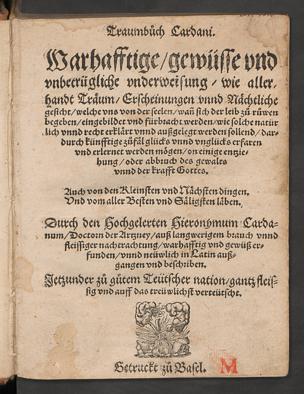 Traumbůch Cardani.
Warhafftige/gewüsse vnd
vnbetrügliche vnderweisung/wie aller-
handt Träum/Erscheinungen vnnd Nächtliche
gesicht/welche vns von der seelen/wañ sich der leib zů růwen
begeben/eingebildet vnd fürbracht werden/wie solche natür
lich vnnd recht erklärt vnnd außgelegt werden sollend/dar-
durch künfftige zůfäl glücks vnnd vnglücks erfaren
vnd erlernet werden mögen/on einige entzie-
hung/oder abbruch des gewales
vnnd der krafft Gottes.
Auch von den Kleinsten vnd Nächsten dingen.
Vnd vom aller Besten vnd Säligsten läben.
Durch den Hochgelerten Hieronymum Carda-
num/Doctorn der Artzney/auß langwerigen brauch vnnd
fleissiger nachtrachtung/warhafftig vnd gewüß er-
funden/vnnd neüwlich in Latin auß-
gangen vnd beschriben.
Jetzunder zů gůtem Teütscher nation/gantz fleis-
sig vnd auff das treüwlichst verteütscht.
Getruckt zů Basel.
M